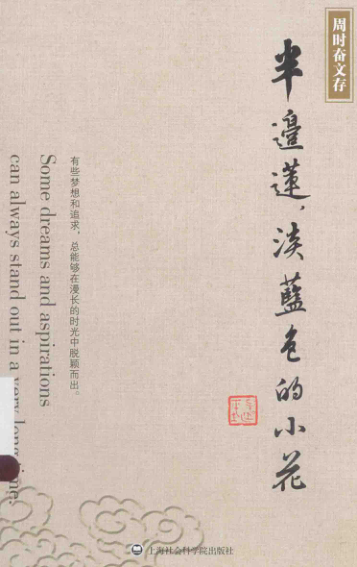 周时奋文存
半邊蓮,淡藍色的小花
有些梦想和追求,总能够在漫长的时光中脱颖而出。
Some dreams and aspirations
can always stand out in a very long time.
上海社会科学院出版社